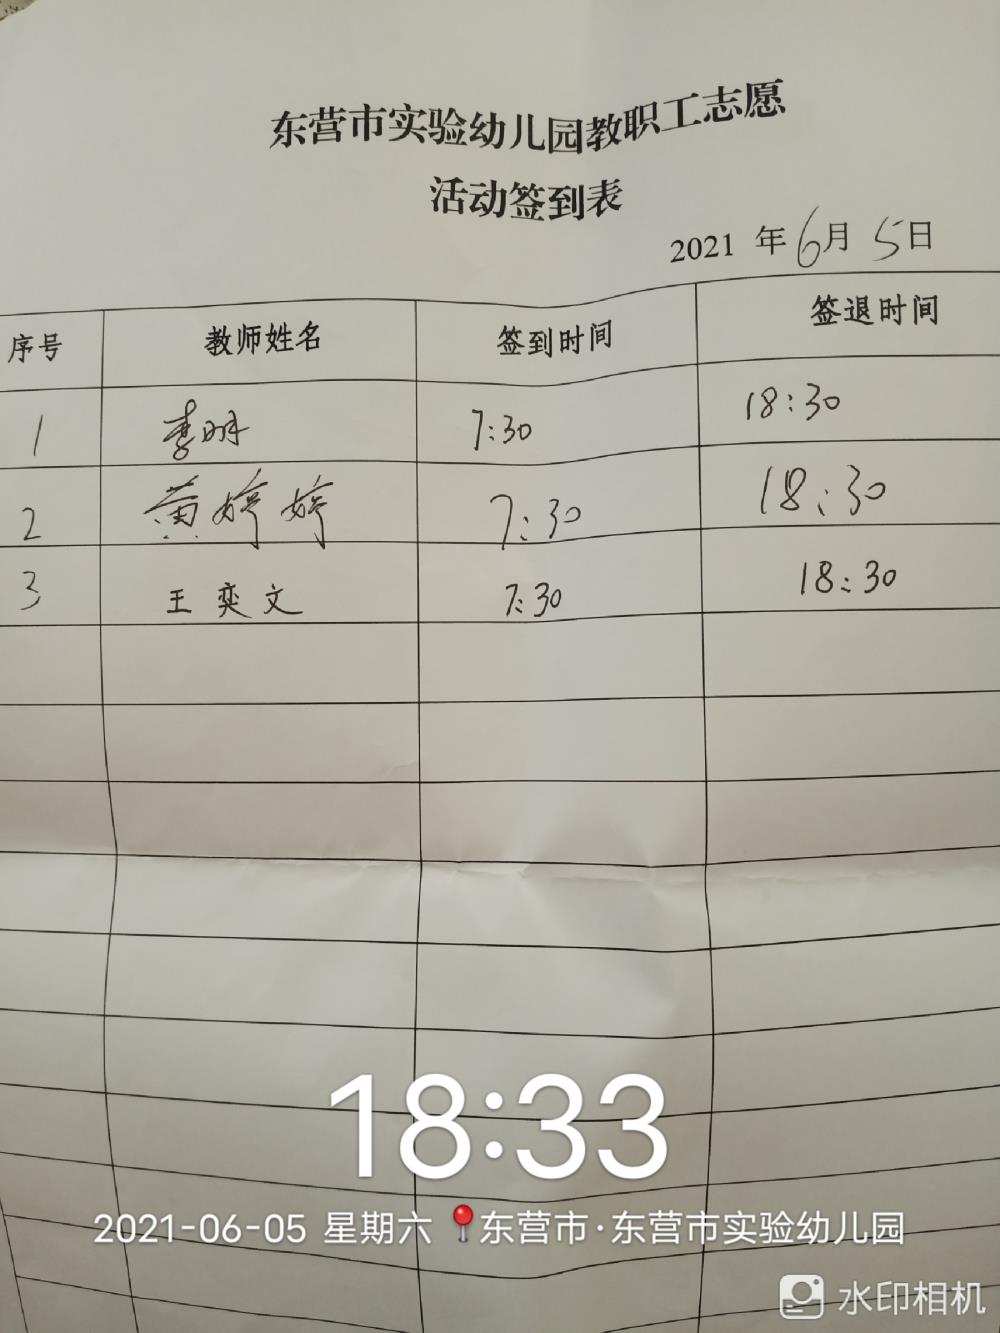 东营市实验幼儿园教职工志愿
活动签到表
2021 年 6月 5日
序号 教师姓名 签到时间 签退时间
1 李明 7:30 18:30
2 黄婷婷 7:30 18:30
3 王奕文 7:30 18:30
18:33
2021-06-05 星期六 📍东营市·东营市实验幼儿园
水印相机